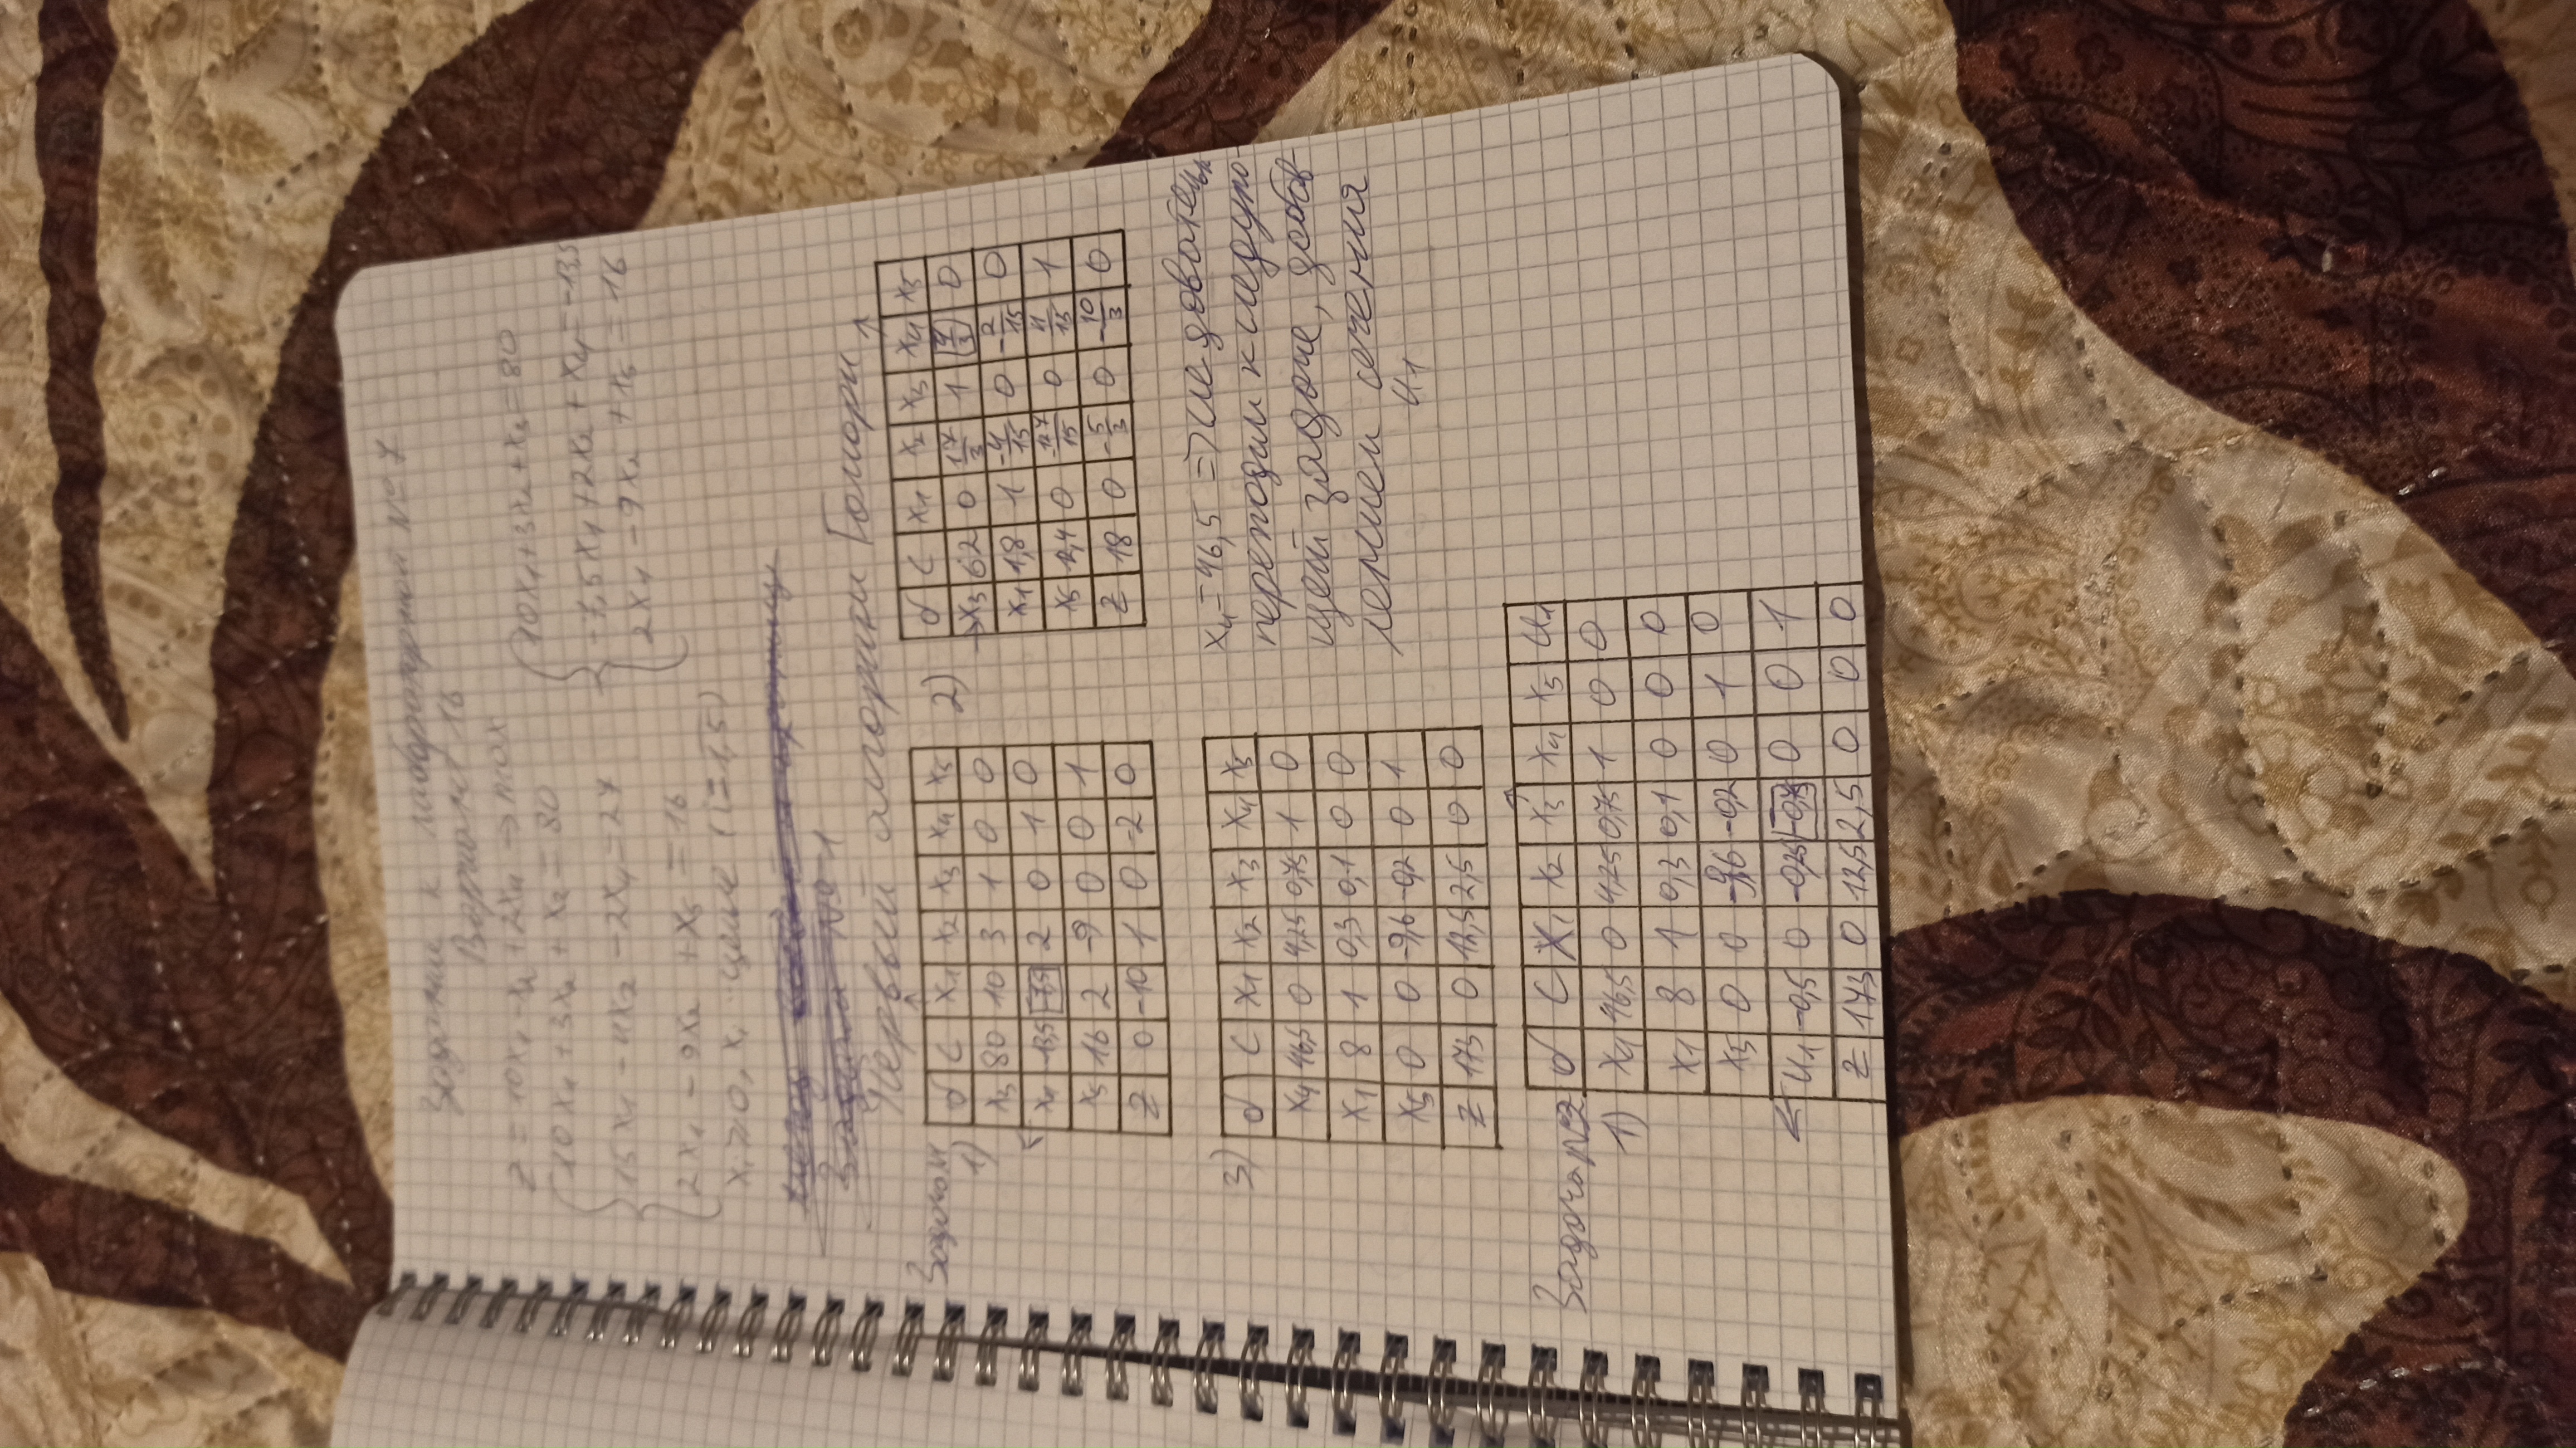 Задание к лабораторной №7
Вариант 16
z = 10x₁ - x₂ + 2x₄ → max
10x₁ + 3x₂ + x₃ = 80
15x₁ - 4x₂ - 2x₄ = 27
2x₁ - 9x₂ + x₅ = 16
xᵢ ≥ 0, xᵢ - целые (i = 1,5)
10x₁ + 3x₂ + x₃ = 80
-7,5x₁ + 2x₂ + x₄ = -13,5
2x₁ - 9x₂ + x₅ = 16
Задача №1
Первый алгоритм Гомори
Задача 1
1)
б C x₁ x₂ x₃ x₄ x₅
x₃ 80 10 3 1 0 0
x₄ -13,5 -7,5 2 0 1 0
x₅ 16 2 -9 0 0 1
z 0 -10 1 0 -2 0
2)
б C x₁ x₂ x₃ x₄ x₅
x₃ 62 0 17/3 1 4/3 0
x₁ 1,8 1 -4/15 0 -2/15 0
x₅ 12,4 0 -127/15 0 4/15 1
z 18 0 -5/3 0 -10/3 0
3)
б C x₁ x₂ x₃ x₄ x₅
x₄ 46,5 0 4,25 0,75 1 0
x₁ 8 1 0,3 0,1 0 0
x₅ 0 0 -9,6 -0,2 0 1
z 173 0 12,5 2,5 0 0
x₄ = 46,5 =>
переходим к следую-
щей задаче, добав-
лением сечения
u₁
Задача №2
1)
б C x₁ x₂ x₃ x₄ x₅ u₁
x₄ 46,5 0 4,25 0,75 1 0 0
x₁ 8 1 0,3 0,1 0 0 0
x₅ 0 0 -9,6 -0,2 0 1 0
u₁ -0,5 0 -0,25 -0,75 0 0 1
z 173 0 12,5 2,5 0 0 0